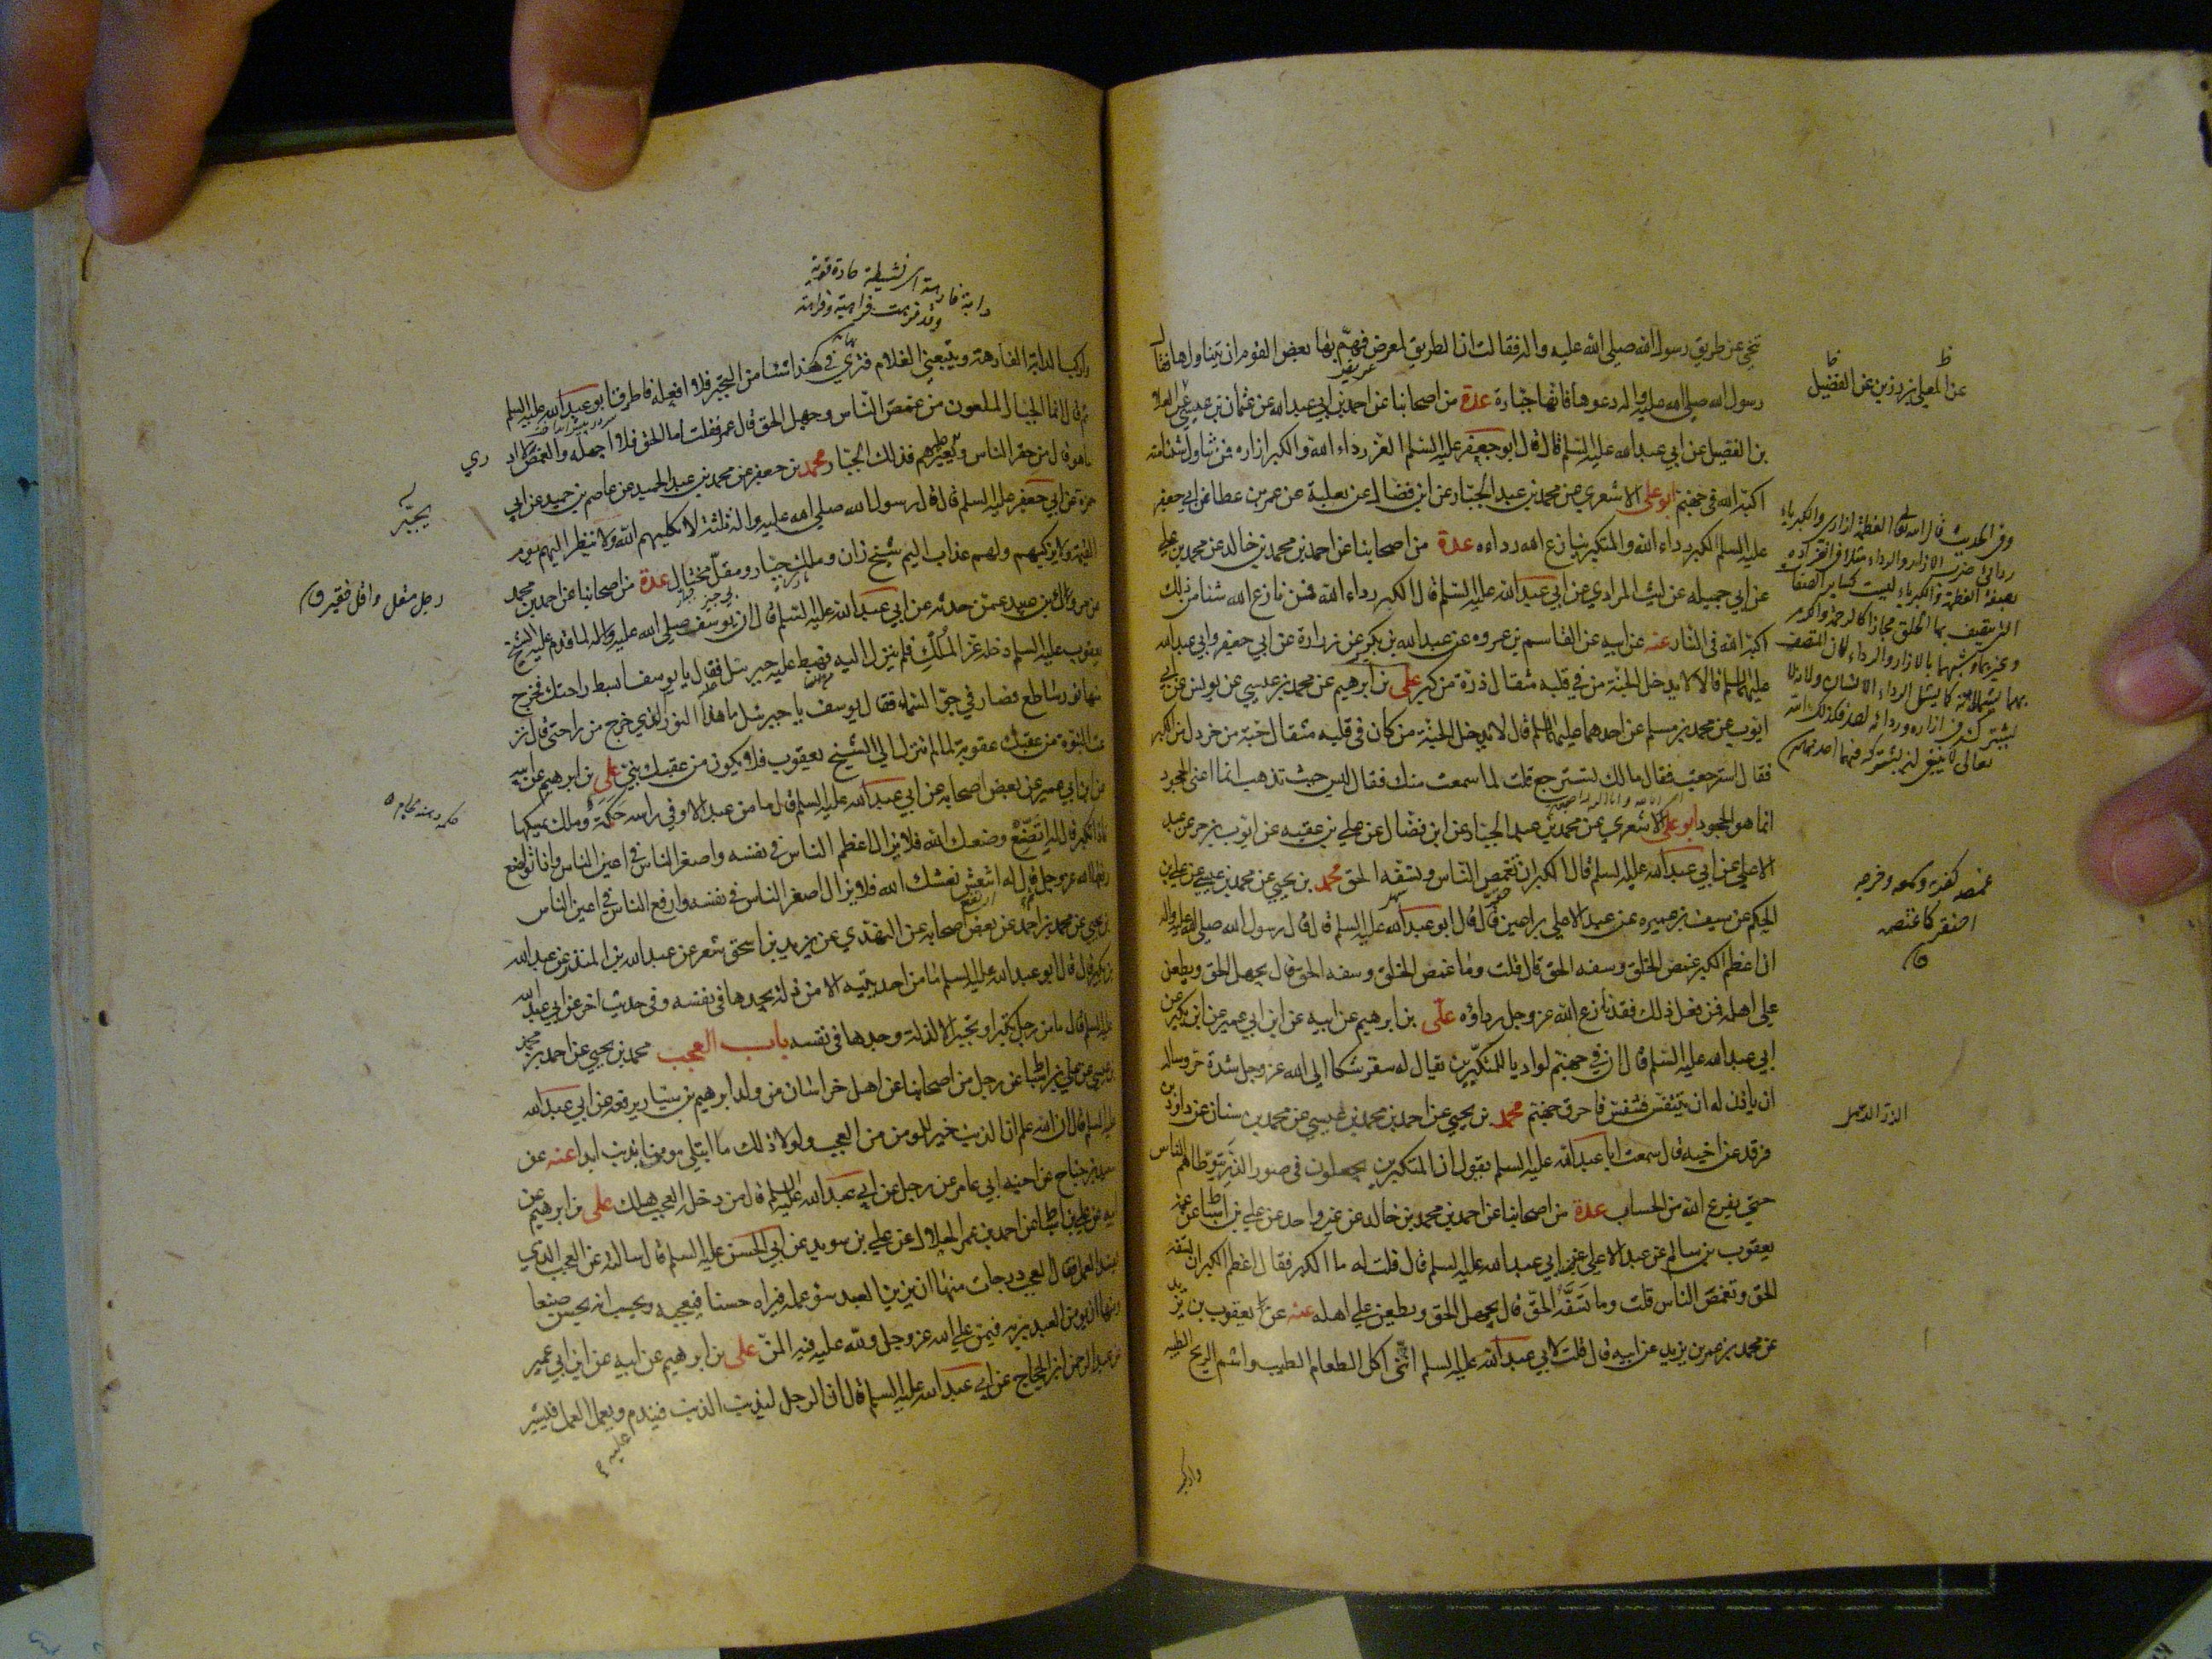 تنحى عن طريق رسول الله صلى الله عليه واله فقالت ان الطريق لمعرض فهم بها بعض القوم ان يتناولها فقال
رسول الله صلى الله عليه واله دعوها فانها جبارة عدة من اصحابنا عن احمد بن ابي عبد الله عن عثمان بن عيسى عن العلا
بن الفضيل عن ابي عبد الله عليه السلم قال قال ابو جعفر عليه السلم العز رداء الله والكبر ازاره فمن تناول شيئا منه
اكبه الله في جهنم ابو علي الاشعري عن محمد بن عبد الجبار عن ابن فضال عن ثعلبة عن معمر بن عطا عن ابي جعفر
عليه السلم الكبر رداء الله والمتكبر ينازع الله رداءه عدة من اصحابنا عن احمد بن محمد بن خالد عن محمد بن علي
عن ابي جميله عن ليث المرادي عن ابي عبد الله عليه السلم قال الكبر رداء الله فمن نازع الله شيئا من ذلك
اكبه الله في النار عنه عن ابيه عن القاسم بن عروه عن عبد الله بن بكير عن زرارة عن ابي جعفر وابي عبد الله
عليهما السلم قالا لا يدخل الجنة من في قلبه مثقال ذرة من كبر علي بن ابرهيم عن محمد بن عيسى عن يونس عن ابي
ايوب عن محمد بن مسلم عن احدهما عليهما السلم قال لا يدخل الجنة من كان في قلبه مثقال حبة من خردل من الكبر
فقال استرجعت فقال مالك تسترجع قلت لما سمعت منك فقال ليس حيث تذهب انما اعني الجحود
انما هو الجحود ابو علي الاشعري عن محمد بن عبد الجبار عن ابن فضال عن علي بن عقبه عن ايوب بن حر عن عبد
الاعلى عن ابي عبد الله عليه السلم قال الكبر ان تغمص الناس وتسفه الحق محمد بن يحيى عن محمد بن عيسى عن علي بن
الحكم عن سيف بن عميره عن عبد الاعلى بن اعين قال قال ابو عبد الله عليه السلم قال قال رسول الله صلى الله عليه واله
ان اعظم الكبر غمص الخلق وسفه الحق قال قلت وما غمص الخلق وسفه الحق قال يجهل الحق ويطعن
على اهله فمن فعل ذلك فقد نازع الله عز وجل رداؤه علي بن ابرهيم عن ابيه عن ابن ابي عمير عن ابن بكير عن
ابي عبد الله عليه السلم قال ان في جهنم لواديا للمتكبرين يقال له سقر شكا الى الله عز وجل شدة حره وساله
ان ياذن له ان يتنفس فتنفس فاحرق جهنم محمد بن يحيى عن احمد بن محمد بن عيسى عن محمد بن سنان عن داود بن
فرقد عن اخيه قال سمعت ابا عبد الله عليه السلم يقول ان المتكبرين يجعلون في صور الذر يتوطاهم الناس
حتى يفرغ الله من الحساب عدة من اصحابنا عن احمد بن محمد بن خالد عن غير واحد عن علي بن اسباط عن عمه
يعقوب بن سالم عن عبد الاعلى عن ابي عبد الله عليه السلم قال قلت له ما الكبر فقال اعظم الكبر ان تسفه
الحق وتغمص الناس قلت وما تسفه الحق قال يجهل الحق ويطعن على اهله عنه عن يعقوب بن يزيد
عن محمد بن عمر بن يزيد عن ابيه قال قلت لابي عبد الله عليه السلم انني اكل الطعام الطيب واشم الريح الطيبه
واركب
عن المعلى بن رزين عن الفضيل
اصفر كاغتمصه
دابة فارهة اي نشيطة حادة قوية
واركب الدابة الفارهة ويتبعني الغلام فترى في هذا شيئا من التجبر فلا افعله فاطرق ابو عبد الله عليه السلم
ثم قال انما الجبار الملعون من غمص الناس وجهل الحق قال عمر فقلت اما الحق فلا اجهله والغمص لا ادري
ما هو قال من حقر الناس وتجبر عليهم فذلك الجبار محمد بن جعفر عن محمد بن عبد الحميد عن عاصم بن حميد عن ابي
حمزة عن ابي جعفر عليه السلم قال قال رسول الله صلى الله عليه واله ثلثة لا يكلمهم الله ولا ينظر اليهم يوم
القيمة ولا يزكيهم ولهم عذاب اليم شيخ زان وملك جبار ومقل مختال عدة من اصحابنا عن احمد بن محمد
عن مروك بن عبيد عمن حدثه عن ابي عبد الله عليه السلم قال ان يوسف صلى الله عليه واله لما قدم عليه الشيخ
يعقوب عليه السلم دخله عز الملك فلم ينزل اليه فهبط عليه جبرئيل فقال يا يوسف ابسط راحتك فخرج
منها نور ساطع فصار في جو السماء فقال يوسف يا جبرئيل ما هذا النور الذي خرج من راحتي قال نزعت
النبوة من عقبك عقوبة لما لم تنزل الى الشيخ يعقوب فلا يكون من عقبك نبي علي بن ابرهيم عن ابيه
عن ابن ابي عمير عن بعض اصحابه عن ابي عبد الله عليه السلم قال ما من عبد الا وفي راسه حكمة وملك يمسكها
فاذا تكبر قال له اتضع وضعك الله فلا يزال اعظم الناس في نفسه واصغر الناس في اعين الناس واذا تواضع
رفعها الله عز وجل ثم قال له انتعش نعشك الله فلا يزال اصغر الناس في نفسه وارفع الناس في اعين الناس
بن يحيى عن محمد بن احمد عن بعض اصحابه عن النهدي عن يزيد بن اسحق شعر عن عبد الله بن المنذر عن عبد الله
بن بكير قال قال ابو عبد الله عليه السلم ما من احد يتيه الا من ذلة يجدها في نفسه وفي حديث اخر عن ابي عبد الله
عليه السلم قال ما من رجل تكبر او تجبر الا لذلة وجدها في نفسه باب العجب محمد بن يحيى عن احمد بن محمد
بن عيسى عن علي بن اسباط عن رجل من اصحابنا عن اهل خراسان من ولد ابرهيم بن سيار يرفعه عن ابي عبد الله
عليه السلم قال ان الله علم ان الذنب خير للمومن من العجب ولولا ذلك ما ابتلي مومن بذنب ابدا عنه عن
سعيد بن جناح عن اخيه ابي عامر عن رجل عن ابي عبد الله عليه السلم قال من دخله العجب هلك علي بن ابرهيم عن
ابيه عن علي بن اسباط عن احمد بن عمر الحلال عن علي بن سويد عن ابي الحسن عليه السلم قال سالته عن العجب الذي
يفسد العمل فقال العجب درجات منها ان يزين للعبد سوء عمله فيراه حسنا فيعجبه ويحسب انه يحسن صنعا
ومنها ان يومن العبد بربه فيمن على الله عز وجل ولله عليه فيه المن علي بن ابرهيم عن ابيه عن ابن ابي عمير
عن عبد الرحمن بن الحجاج عن ابي عبد الله عليه السلم قال ان الرجل ليذنب الذنب فيندم عليه ويعمل العمل فيسره
رجل مقل واقل فقير ق